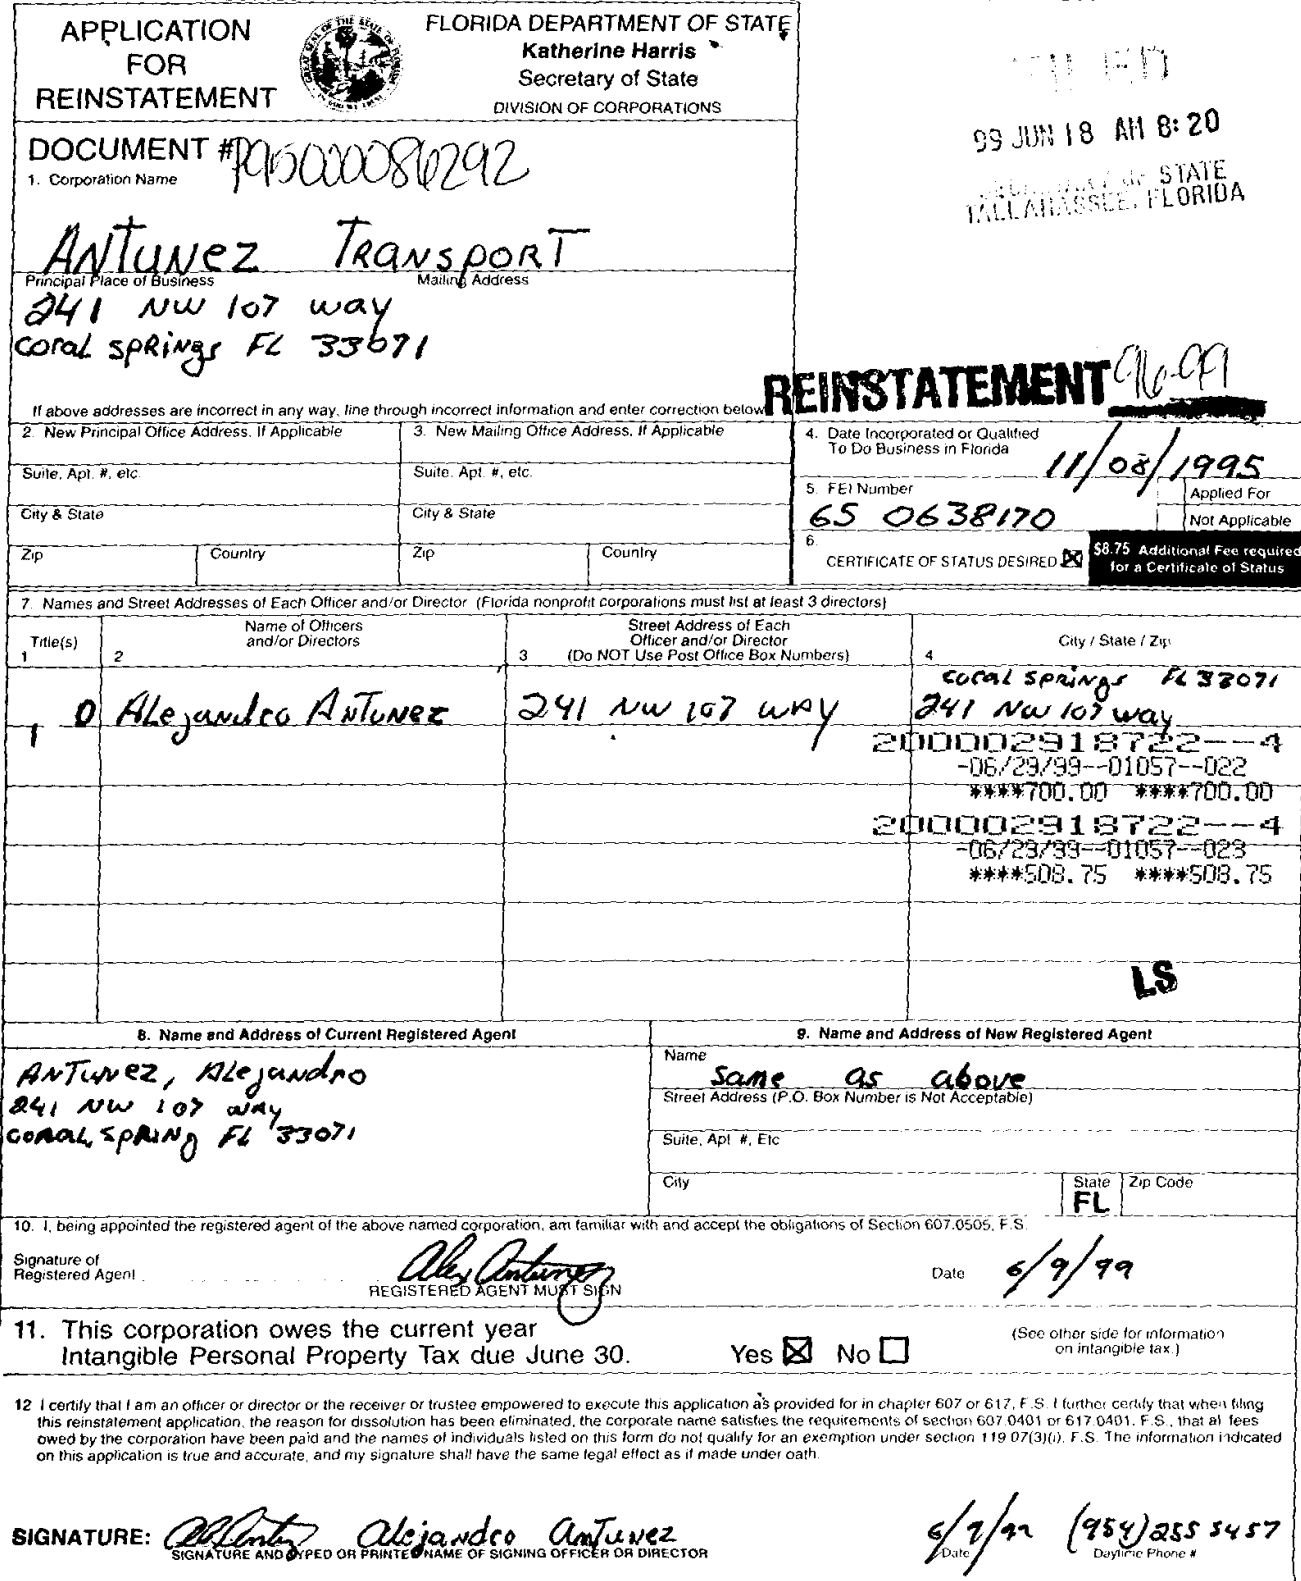 APPLICATION
FOR
REINSTATEMENT
FLORIDA DEPARTMENT OF STATE
Katherine Harris
Secretary of State
DIVISION OF CORPORATIONS
FILED
99 JUN 18 AM 8:20
OF STATE
TALLAHASSEE, FLORIDA
DOCUMENT # P95000086292
1. Corporation Name
ANTUNEZ TRANSPORT
Principal Place of Business
Mailing Address
241 NW 107 way
coral springs FL 33071
REINSTATEMENT 96-99
If above addresses are incorrect in any way, line through incorrect information and enter correction below
2. New Principal Office Address, If Applicable
3. New Mailing Office Address, If Applicable
4. Date Incorporated or Qualified
To Do Business in Florida
11/08/1995
Suite, Apt. #, etc.
Suite, Apt. #, etc.
5. FEI Number
65 0638170
Applied For
Not Applicable
City & State
City & State
6.
CERTIFICATE OF STATUS DESIRED
$8.75 Additional Fee required
for a Certificate of Status
Zip
Country
Zip
Country
7. Names and Street Addresses of Each Officer and/or Director (Florida nonprofit corporations must list at least 3 directors)
Title(s)
1
Name of Officers
and/or Directors
2
Street Address of Each
Officer and/or Director
3 (Do NOT Use Post Office Box Numbers)
City / State / Zip
4
coral springs FL 33071
D Alejandro Antunez 241 NW 107 WAY 241 NW 107 way
200002918722--4
-06/29/99--01057--022
****700.00 ****700.00
200002918722--4
-06/29/99--01057--023
****508.75 ****508.75
LS
8. Name and Address of Current Registered Agent
9. Name and Address of New Registered Agent
ANTUNEZ, Alejandro
241 NW 107 WAY
CORAL SPRING FL 33071
Name
same as above
Street Address (P.O. Box Number is Not Acceptable)
Suite, Apt #, Etc
City
State
FL
Zip Code
10. I, being appointed the registered agent of the above named corporation, am familiar with and accept the obligations of Section 607.0505, F.S.
Signature of
Registered Agent
Alex Antunez
REGISTERED AGENT MUST SIGN
Date 6/9/99
11. This corporation owes the current year
Intangible Personal Property Tax due June 30.
Yes
No
(See other side for information
on intangible tax.)
12 I certify that I am an officer or director or the receiver or trustee empowered to execute this application as provided for in chapter 607 or 617, F.S. I further certify that when filing
this reinstatement application, the reason for dissolution has been eliminated, the corporate name satisfies the requirements of section 607.0401 or 617.0401, F.S., that all fees
owed by the corporation have been paid and the names of individuals listed on this form do not qualify for an exemption under section 119.07(3)(i), F.S. The information indicated
on this application is true and accurate, and my signature shall have the same legal effect as if made under oath.
SIGNATURE: Alejandro Antunez
SIGNATURE AND TYPED OR PRINTED NAME OF SIGNING OFFICER OR DIRECTOR
6/9/99
Date
(954) 255 5457
Daytime Phone #